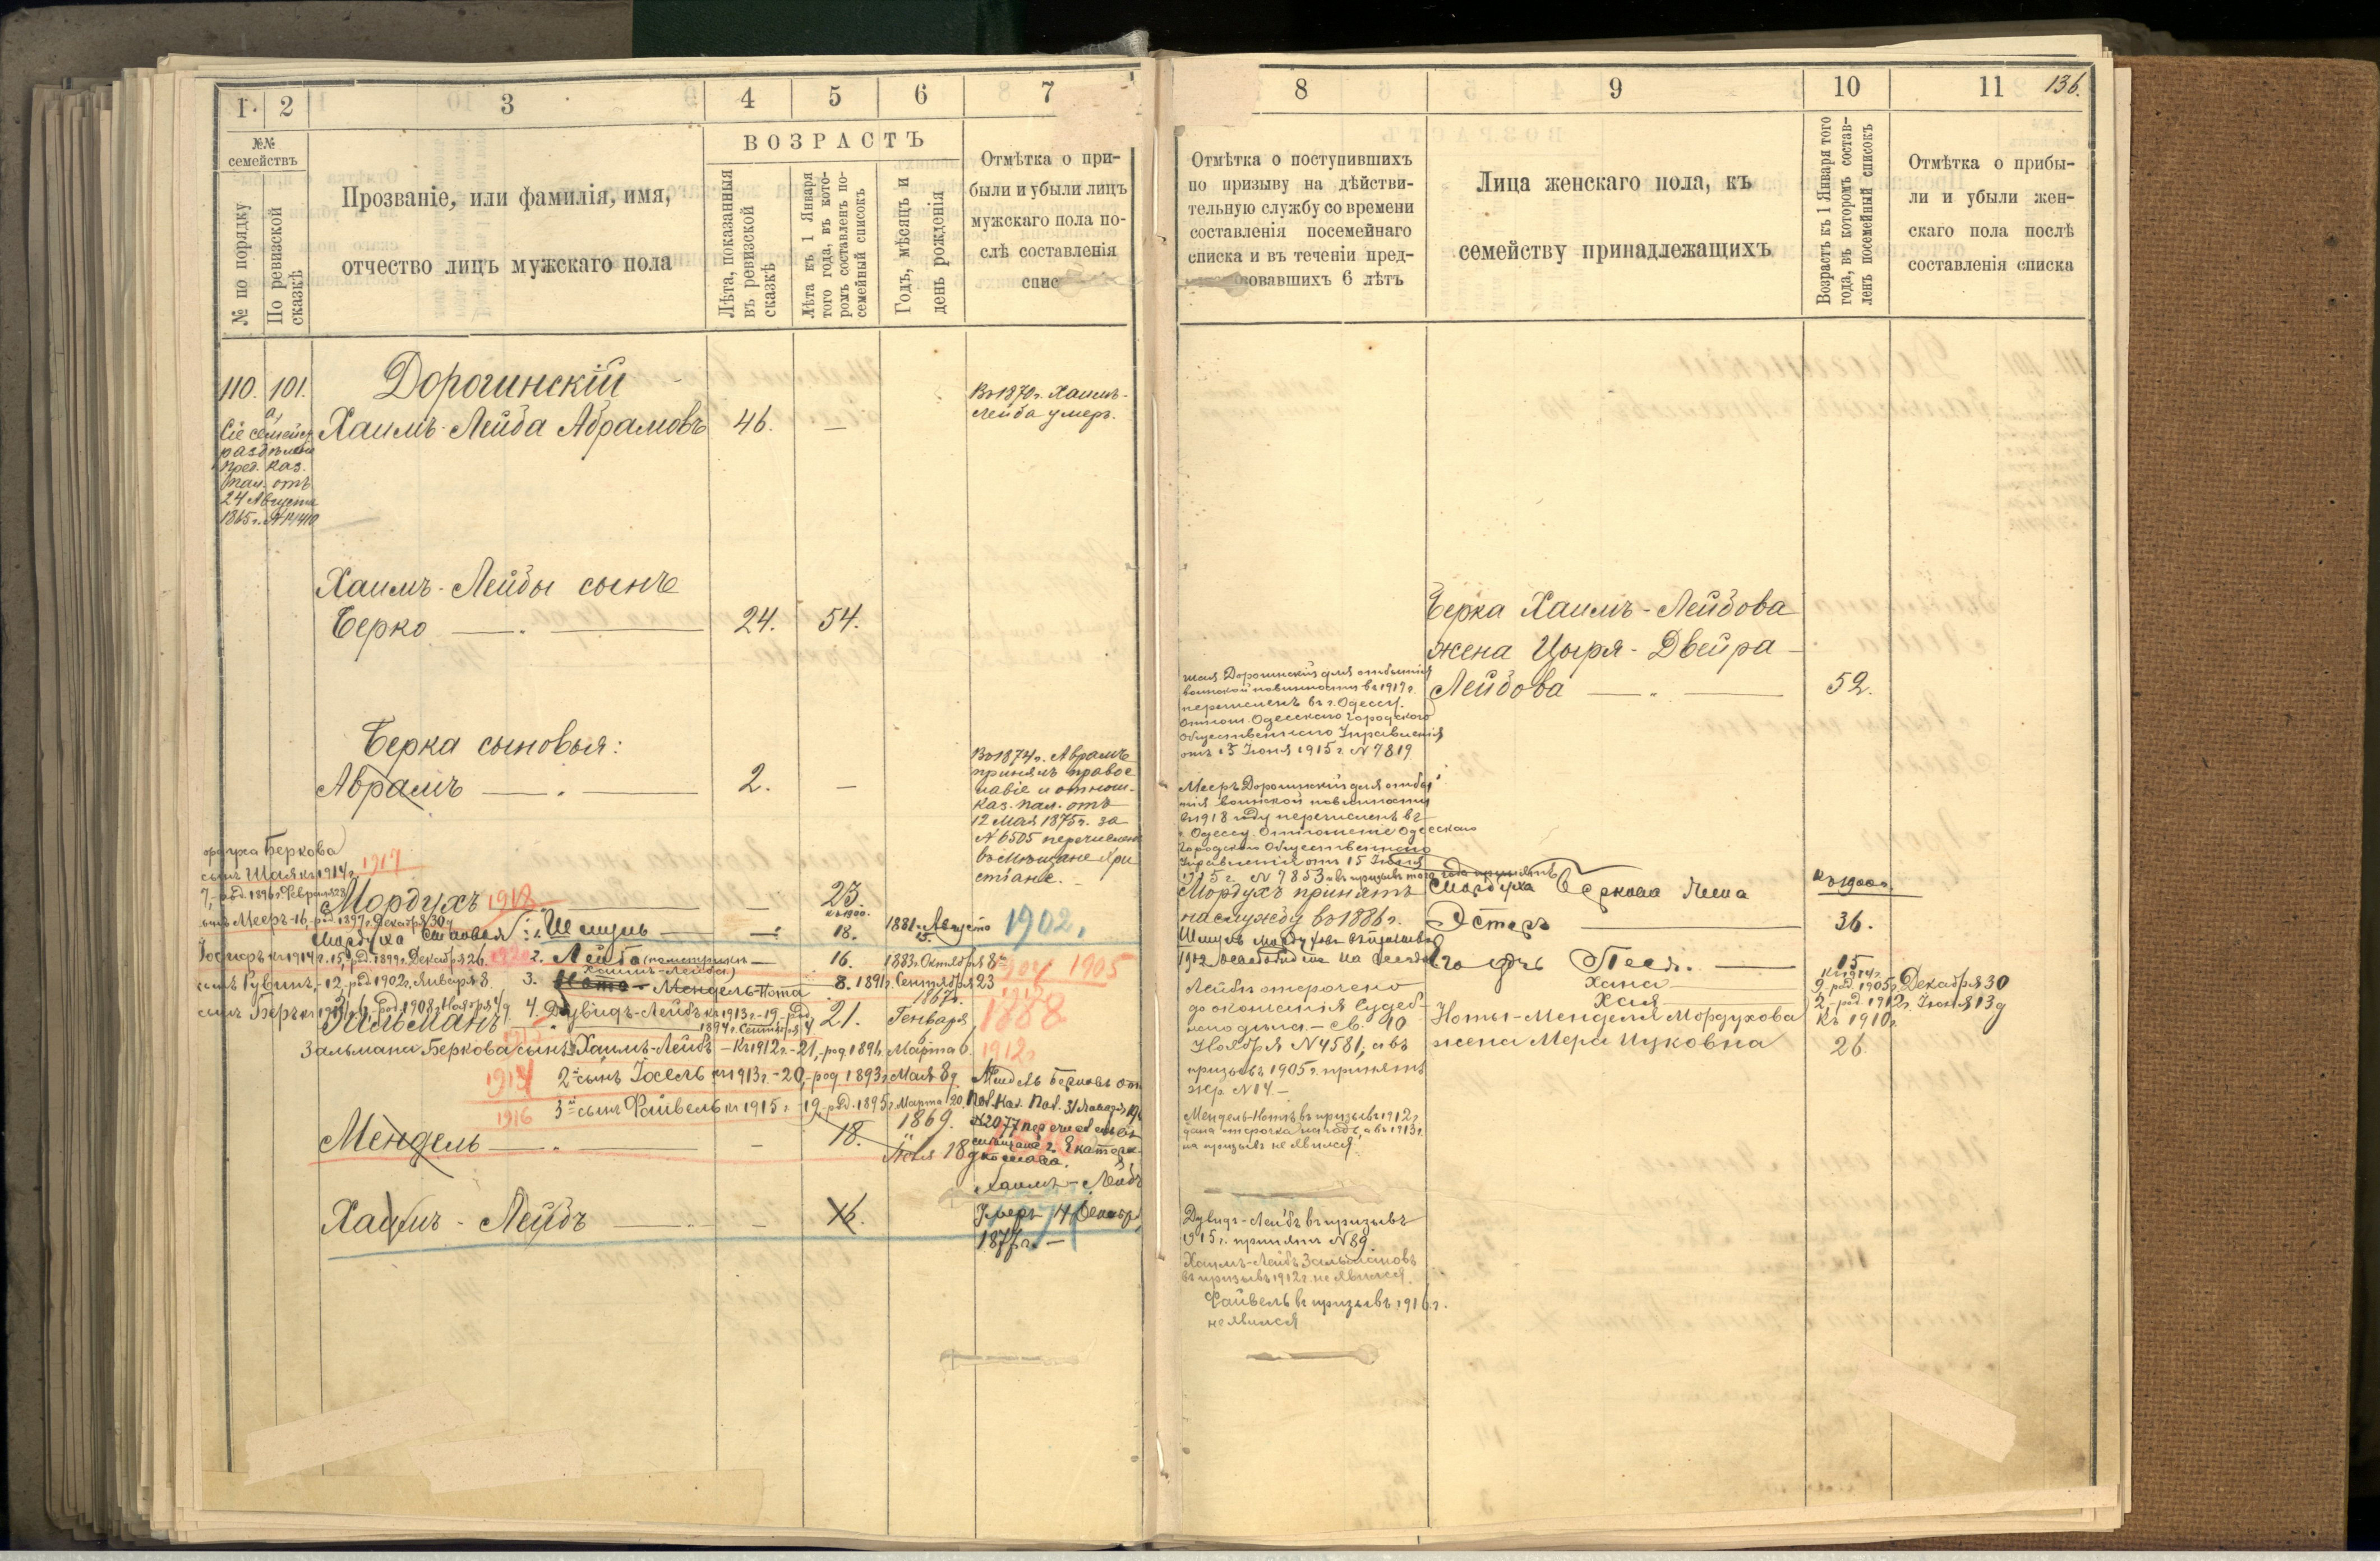 1. 2 3 4 5 6 7
№№ семействъ
№ по порядку
По ревизской сказкѣ
Прозваніе, или фамилія, имя,
отчество лицъ мужскаго пола
ВОЗРАСТЪ
Лѣта, показанныя
въ ревизской
сказкѣ
Лѣта къ 1 Января
того года, въ кото-
ромъ составленъ по-
семейный списокъ
Годъ, мѣсяцъ и
день рожденія
Отмѣтка о при-
были и убыли лицъ
мужскаго пола по-
слѣ составленія
спис
110. 101.
а,
Сіе семейст.
раздѣлено
пред. каз.
пал. отъ
24 Августа
1865 г.
Дорогинскій
Хаимъ-Лейба Абрамовъ 46. —
Въ 1870 г. Хаимъ-
Лейба умеръ.
Хаимъ-Лейбы сынъ
Берко 24. 54.
Берка сыновья:
Абрамъ 2. —
Въ 1874 г. Абрамъ
принялъ правос
лавіе и отнош.
каз. пал. отъ
12 Мая 1875 г. за
№ 6505 перечислен
въ мѣщане Хри
стіане.
Беркова
сынъ Шая къ 1914 г. 1917
7, род. 1896 г. Февраля 28
Мордухъ 1918 — 23.
къ 1900.
Мееръ-16, род. 1897 г. Декабря 30
Мордуха сыновья: 1. Шмуль — 18. 1881 Августа 15. 1902.
къ 1914 г. 15, род. 1899 г. Декабря 26.
2. Лейба (по метрикѣ — 16. 1883 г. Октября 8 1904 1905
Хаимъ-Лейба)
сынъ Рувинъ, - 12, род 1902 г. Января 8.
3. Нота - Мендель-Нота 8. 1891 г. Сентября 23
сынъ Беръ род. 1908 г. Ноября 4
4. Дувидъ-Лейбъ къ 1913 г. - 19, род.
1894 г. Сентября 4
Зальманъ 21. 1867 г. Генваря 1888
Зальмана Беркова сынъ Хаимъ-Лейбъ — къ 1912 г. - 21, род 1891 г. Марта 6. 1912 г
1914 2й сынъ Іосель къ 1913 г. - 20, род 1893 г. Мая 8
1916 3й сынъ Файвель къ 1915 г. - 19, род. 1895 г. Марта 20.
Мендель — 18. 1869. Іюля 18
Мендель Берковъ
№ 2077 перечисленъ
г. Екатери
Хаимъ-Лейбъ — 16.
Хаимъ-Лейбъ
умеръ 14 Декабр
1877 г. —
8 9 10 11 136.
Отмѣтка о поступившихъ
по призыву на дѣйстви-
тельную службу со времени
составленія посемейнаго
списка и въ теченіи пред-
вовавшихъ 6 лѣтъ
Лица женскаго пола, къ
семейству принадлежащихъ
Возрастъ къ 1 Января того
года, въ которомъ состав-
ленъ посемейный списокъ
Отмѣтка о прибы-
ли и убыли жен-
скаго пола послѣ
составленія списка
Берка Хаимъ-Лейбова
жена Цыря-Двейра
Лейбова 52.
Шая Дорогинскій для отбытія
воинской повинности въ 1917 г.
перечисленъ въ г. Одессу.
Отнош. Одесскаго Городского
Общественнаго Управленія
отъ 15 Іюня 1915 г. № 7819
Мееръ Дорогинскій для отбы
тія воинской повинности
въ 1918 году перечисленъ въ
г. Одессу. Отношеніе Одесскаго
Городского Общественнаго
Управленія отъ 15 Іюня
1915 г. № 7853
Мордухъ принятъ
на службу въ 1886 г.
Мордуха Беркова жена къ 1900 г.
Эстеръ 36.
Лейбѣ отсрочено
до окончанія судеб-
наго дѣла. — Св. 10
Ноября № 4581, а въ
призывъ 1905 г. принятъ
жр. № 14 —
его дочь Песя. — 15
къ 1914 г.
Хана 9, род. 1905 г. Декабря 30
Хая 2, род. 1912 г. Іюня 13
Ноты-Менделя Мордухова къ 1910 г.
жена Мера Ицковна 26
Мендель-Нотѣ въ призывъ 1912 г.
дана отсрочка на годъ, а въ 1913 г.
на призывъ не явился.
Дувидъ-Лейбъ въ призывъ
1915 г. принятъ № 89
Хаимъ-Лейбъ Зальмановъ
въ призывъ 1912 г. не явился.
Файвель въ призывъ 1916 г.
не явился